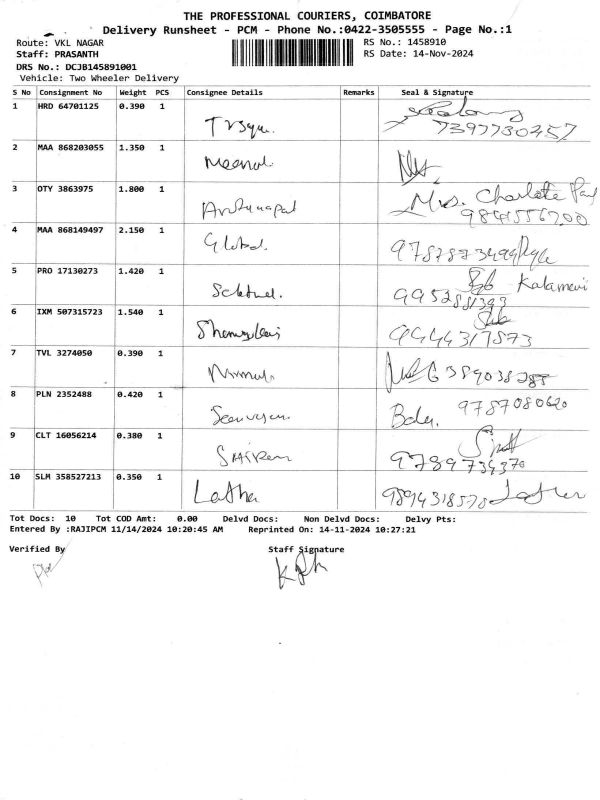 THE PROFESSIONAL COURIERS, COIMBATORE
Delivery Runsheet - PCM - Phone No.:0422-3505555 - Page No.:1
Route: VKL NAGAR
Staff: PRASANTH
DRS No.: DCJB145891001
Vehicle: Two Wheeler Delivery
RS No.: 1458910
RS Date: 14-Nov-2024
S No Consignment No Weight PCS Consignee Details Remarks Seal & Signature
1 HRD 64701125 0.390 1
7397730457
2 MAA 868203055 1.350 1
3 OTY 3863975 1.800 1 Mrs. Charlote
9841556700
4 MAA 868149497 2.150 1 Global.
5 PRO 17130273 1.420 1 Kalamani
6 IXM 507315723 1.540 1
9944317873
7 TVL 3274050 0.390 1
6389038288
8 PLN 2352488 0.420 1
9787080620
9 CLT 16056214 0.380 1
9789734370
10 SLM 358527213 0.350 1 Latha 9894318578
Tot Docs: 10 Tot COD Amt: 0.00 Delvd Docs: Non Delvd Docs: Delvy Pts:
Entered By :RAJIPCM 11/14/2024 10:20:45 AM Reprinted On: 14-11-2024 10:27:21
Verified By Staff Signature